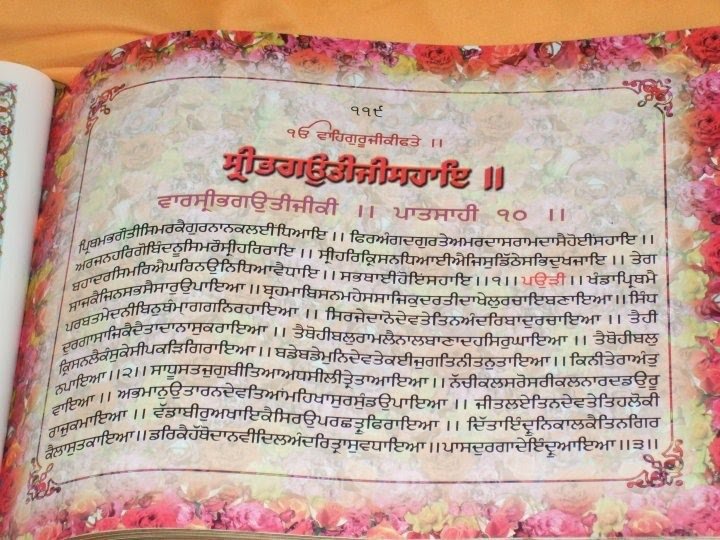 ੧੧੯
ੴ ਵਾਹਿਗੁਰੂਜੀਕੀਫਤੇ ॥
ਸ੍ਰੀਭਗਉਤੀਜੀਸਹਾਇ ॥
ਵਾਰਸ੍ਰੀਭਗਉਤੀਜੀਕੀ ॥ ਪਾਤਸਾਹੀ ੧੦ ॥
ਪ੍ਰਿਥਮਭਗੌਤੀਸਿਮਰਕੈਗੁਰਨਾਨਕਲਈਧਿਆਇ ॥ ਫਿਰਅੰਗਦਗੁਰਤੇਅਮਰਦਾਸਰਾਮਦਾਸੈਹੋਈਸਹਾਇ ॥
ਅਰਜਨਹਰਿਗੋਬਿੰਦਨੂਸਿਮਰੌਸ੍ਰੀਹਰਿਰਾਇ ॥ ਸ੍ਰੀਹਰਿਕ੍ਰਿਸਨਧਿਆਈਐਜਿਸੁਡਿੱਠੇਸਭਿਦੁਖਜਾਇ ॥ ਤੇਗ
ਬਹਾਦਰਸਿਮਰਿਐਘਰਿਨਉਨਿਧਿਆਵੈਧਾਇ ॥ ਸਭਥਾਈਹੋਇਸਹਾਇ ॥੧॥ ਪਉੜੀ ॥ ਖੰਡਾਪ੍ਰਿਥਮੈ
ਸਾਜਕੈਜਿਨਸਭਸੈਸਾਰੁਉਪਾਇਆ ॥ ਬ੍ਰਹਮਾਬਿਸਨਮਹੇਸਸਾਜਿਕੁਦਰਤੀਦਾਖੇਲੁਰਚਾਇਬਣਾਇਆ॥ਸਿੰਧ
ਪਰਬਤਮੇਦਨੀਬਿਨੁਥੰਮਾਗਗਨਿਰਹਾਇਆ ॥ ਸਿਰਜੇਦਾਨੋਦੇਵਤੇਤਿਨਅੰਦਰਿਬਾਦੁਰਚਾਇਆ ॥ ਤੈਹੀ
ਦੁਰਗਾਸਾਜਿਕੈਦੈਤਾਦਾਨਾਸੁਕਰਾਇਆ ॥ ਤੈਥੋਹੀਬਲੁਰਾਮਲੈਨਾਲਬਾਣਾਦਹਸਿਰੁਘਾਇਆ ॥ ਤੈਥੋਹੀਬਲੁ
ਕ੍ਰਿਸਨਲੈਕੰਸੁਕੇਸੀਪਕੜਿਗਿਰਾਇਆ ॥ ਬਡੇਬਡੇਮੁਨਿਦੇਵਤੇਕਈਜੁਗਤਿਨੀਤਨੁਤਾਇਆ ॥ ਕਿਨੀਤੇਰਾਅੰਤੁ
ਨਪਾਇਆ ॥੨॥ ਸਾਧੂਸਤਜੁਗੁਬੀਤਿਆਅਧਸੀਲੀਤ੍ਰੇਤਾਆਇਆ ॥ ਨੱਚੀਕਲਸਰੋਸਰੀਕਲਨਾਰਦਡਉਰੂ
ਵਾਇਆ ॥ ਅਭਮਾਨੁਉਤਾਰਨਦੇਵਤਿਆਂਮਹਿਖਾਸੁਰਸੁੰਭਉਪਾਇਆ ॥ ਜੀਤਲਏਤਿਨਦੇਵਤੇਤਿਹਲੋਕੀ
ਰਾਜੁਕਮਾਇਆ ॥ ਵੱਡਾਬੀਰੁਅਖਾਇਕੈਸਿਰਉਪਰਛਤ੍ਰੁਫਿਰਾਇਆ ॥ ਦਿੱਤਾਇੰਦ੍ਰੁਨਿਕਾਲਕੈਤਿਨਗਿਰ
ਕੈਲਾਸੁਤਕਾਇਆ॥ਡਰਿਕੈਹੱਥੋਦਾਨਵੀਦਿਲਅੰਦਰਿਤ੍ਰਾਸੁਵਧਾਇਆ॥ਪਾਸਦੁਰਗਾਦੇਇੰਦ੍ਰੁਆਇਆ॥੩॥